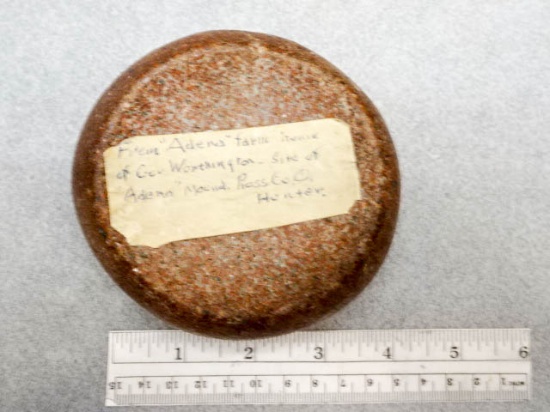 From "Adena" farm house
of Gov Worthington - Site of
"Adena" Mound. Ross Co. O.
Hunter.
1 2 3 4 5 6
15 14 13 12 11 10 9 8 7 6 5 4 3 2 1